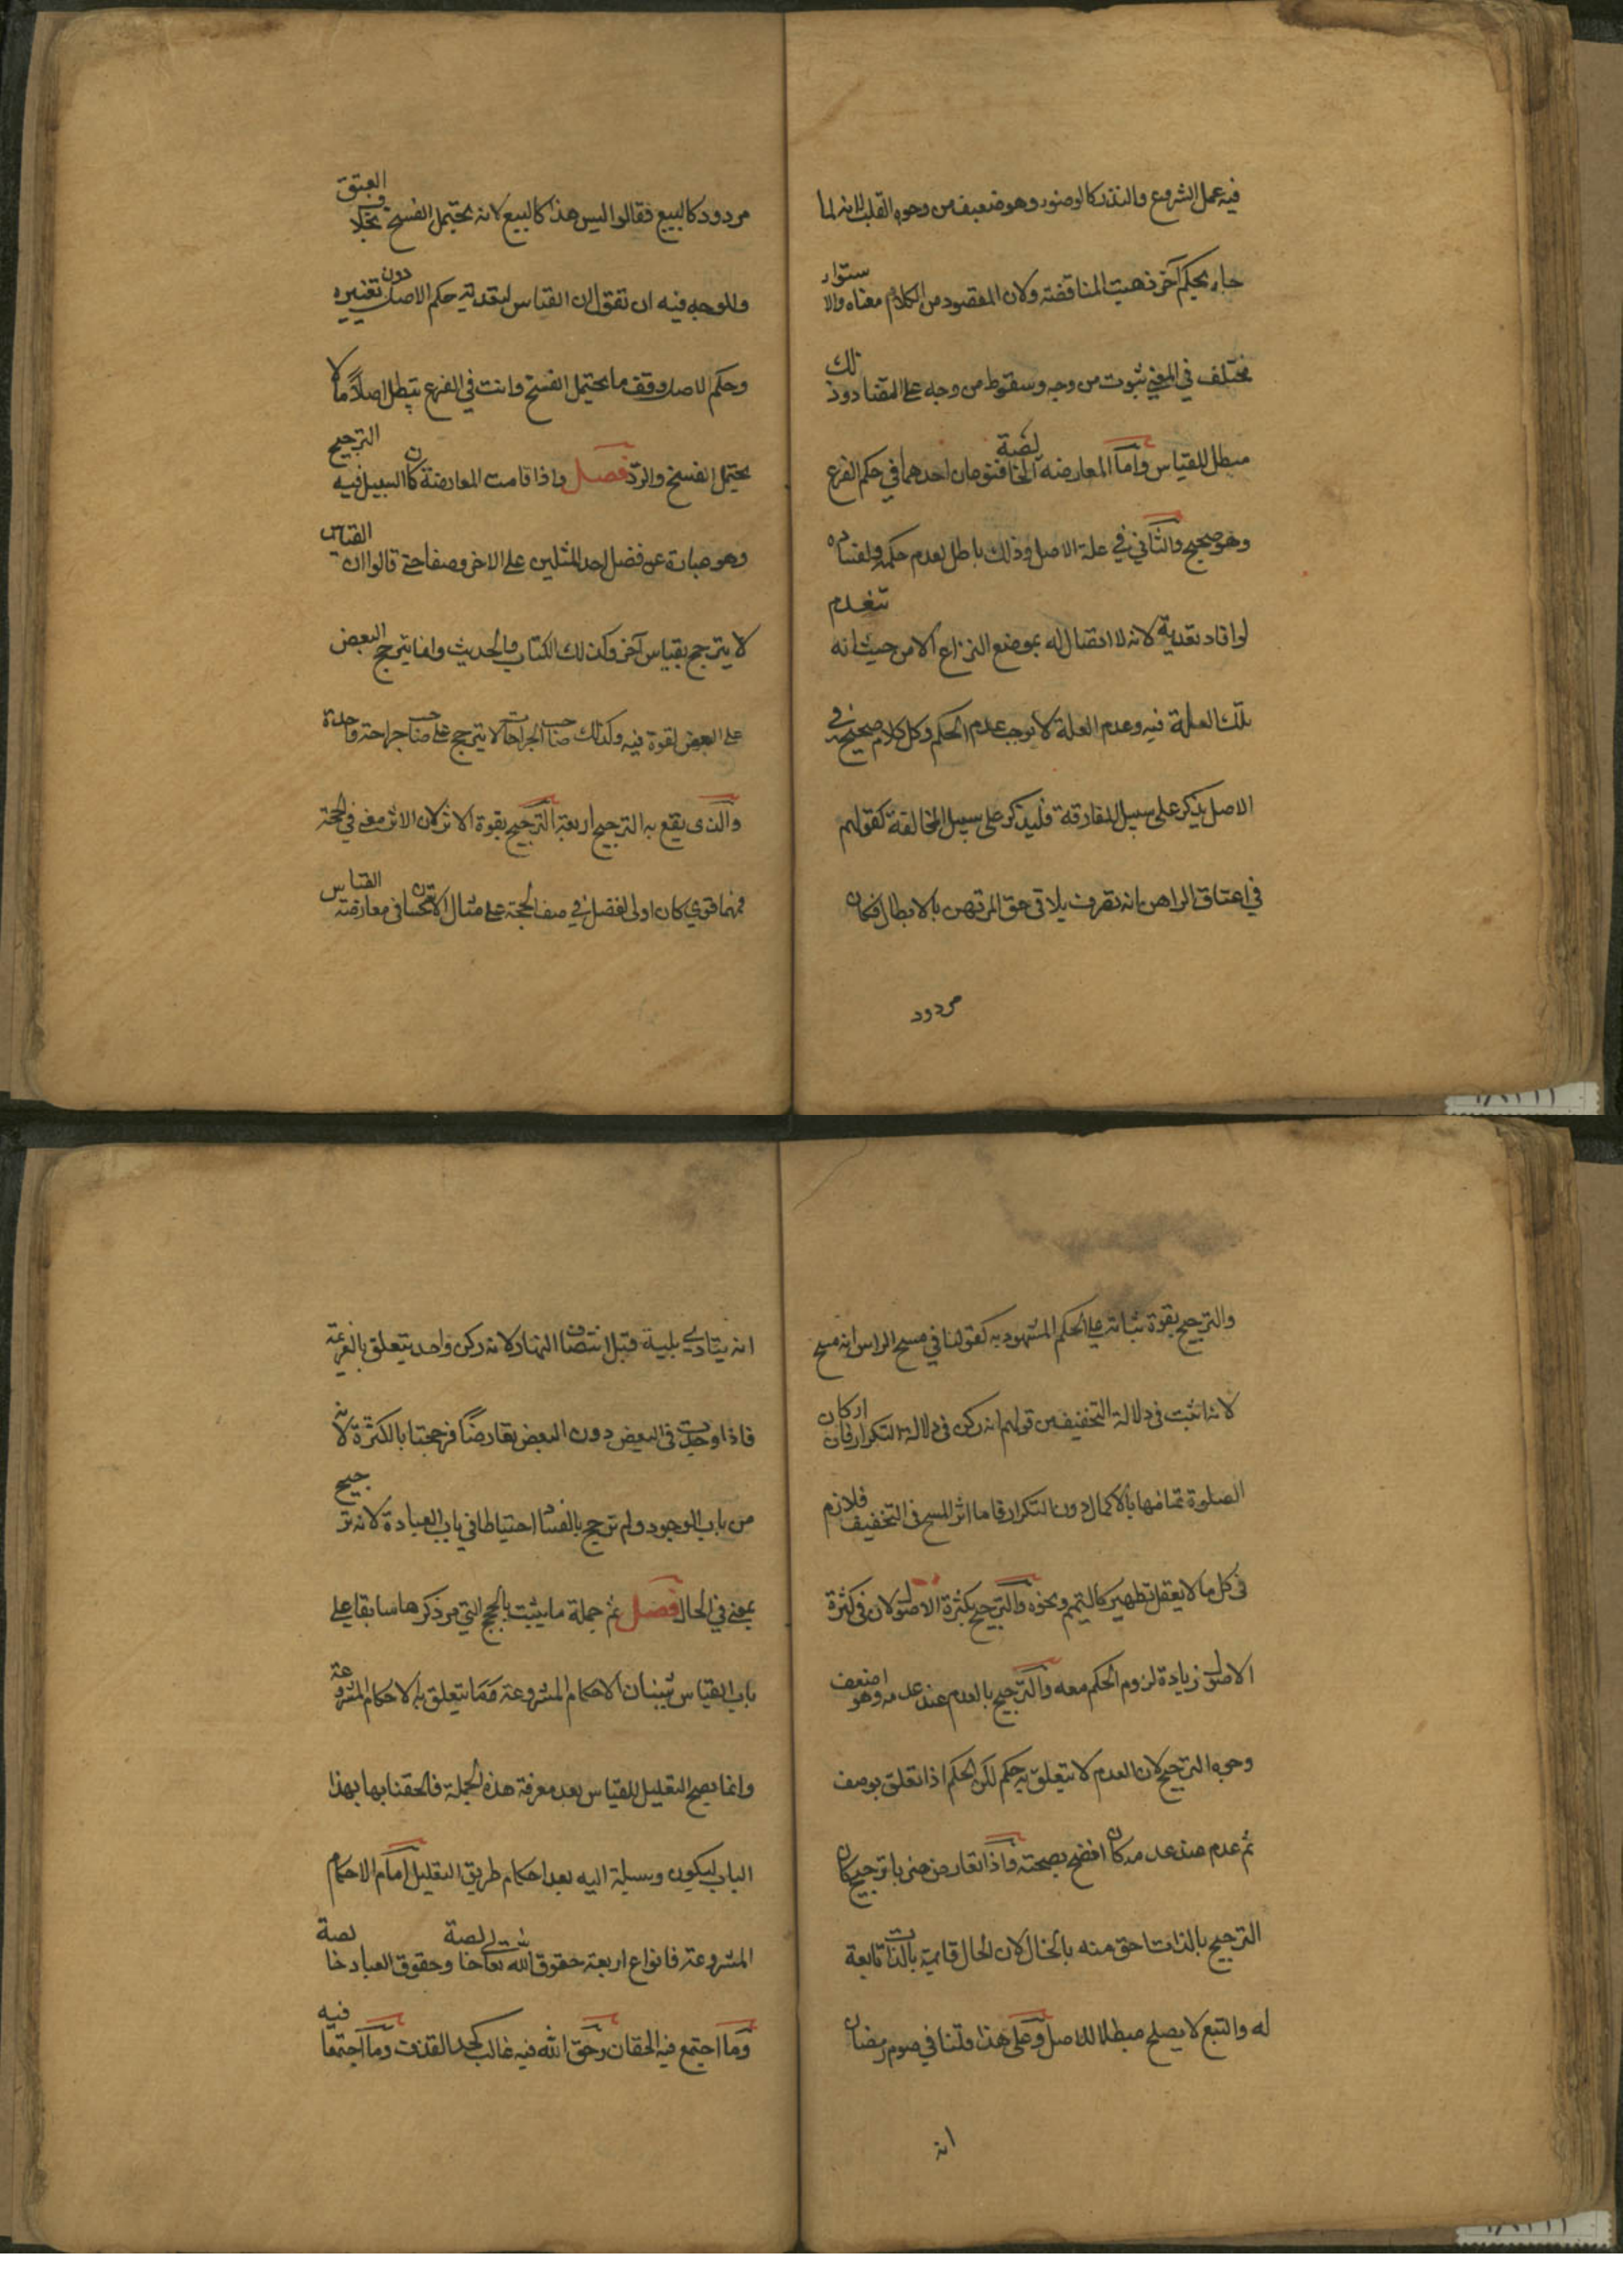 فيه عمل الشروع والنذر كالوضوء وهو ضعيف من وجوه القلب لانه لما
جاء بحكم آخر ذهبت المناقضة ولان المقصود من الكلام معناه والاستواء
مختلف في المعنى ثبوت من وجه وسقوط من وجه على التضاد وذلك
مبطل للقياس واما المعارضة الخالصة فنوعان احدهما في حكم الفرع
وهو صحيح والثاني في علة الاصل وذلك باطل لعدم حكمه ولفساده
لو افاد تعدية لانه لا اتصال له بموضع النزاع الا من حيث انه تنعدم
تلك العلة فيه وعدم العلة لا يوجب عدم الحكم وكل كلام صحيح في
الاصل يذكر على سبيل المفارقة فليذكر على سبيل المخالفة كقولهم
في اعتاق الراهن انه تصرف يلاقي حق المرتهن بالابطال فكان
مردود
مردود كالبيع فقالوا ليس هذا كالبيع لانه يحتمل الفسخ بخلاف العتق
والوجه فيه ان نقول ان القياس لتعدية حكم الاصل دون تغييره
وحكم الاصل وقف ما يحتمل الفسخ وانت في الفرع تبطل اصلا ما لا
يحتمل الفسخ والرد فصل واذا قامت المعارضة كان السبيل فيه الترجيح
وهو عبارة عن فضل احد المثلين على الاخر وصفا حتى قالوا ان القياس
لا يترجح بقياس آخر وكذلك الكتاب والحديث وانما يترجح البعض
على البعض لقوة فيه وكذلك صاحب الجراحات لا يترجح على صاحب جراحة واحدة
والذى يقع به الترجيح اربعة الترجيح بقوة الاثر لان الاثر معنى في الحجة
فمهما قوي كان اولى لفضل في وصف الحجة على مثال الاستحسان في معارضة القياس
والترجيح بقوة ثباته على الحكم المشهود به كقولنا في مسح الراس انه مسح
لانه اثبت في دلالة التخفيف من قولهم انه ركن في دلالة التكرار فان اركان
الصلوة تمامها بالاكمال دون التكرار فاما اثر المسح في التخفيف فلازم
في كل ما لا يعقل تطهيرا كالتيمم ونحوه والترجيح بكثرة الاصول لان في كثرة
الاصول زيادة لزوم الحكم معه والترجيح بالعدم عند عدمه وهو اضعف
وجوه الترجيح لان العدم لا يتعلق به حكم لكن الحكم اذا تعلق بوصف
ثم عدم عند عدمه كان اوضح بصحته واذا تعارض ضربا ترجيح كان
الترجيح بالذات احق منه بالحال لان الحال قايمة بالذات تابعة
له والتبع لا يصلح مبطلا للاصل وعلى هذا قلنا في صوم رمضان
انه
انه يتادى بنية قبل انتصاف النهار لانه ركن واحد يتعلق بالعزيمة
فاذا وجدت في البعض دون البعض تعارضا فرجحنا بالكثرة لانه
من باب الوجود ولم نرجح بالفساد احتياطا في باب العبادة لانه ترجيح
بمعنى في الحال فصل ثم جملة ما يثبت بالحجج التي مر ذكرها سابقا على
باب القياس شيئان الاحكام المشروعة وما يتعلق به الاحكام المشروعة
وانما يصح التعليل للقياس بعد معرفة هذه الجملة فالحقنا بها بهذا
الباب ليكون وسيلة اليه بعد احكام طريق التعليل اما الاحكام
المشروعة فانواع اربعة حقوق الله تعالى خالصة وحقوق العباد خالصة
وما اجتمع فيه الحقان وحق الله فيه غالب كحد القذف وما اجتمعا فيه